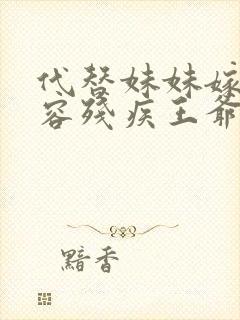 代替妹妹嫁
容残疾王爷
黯香